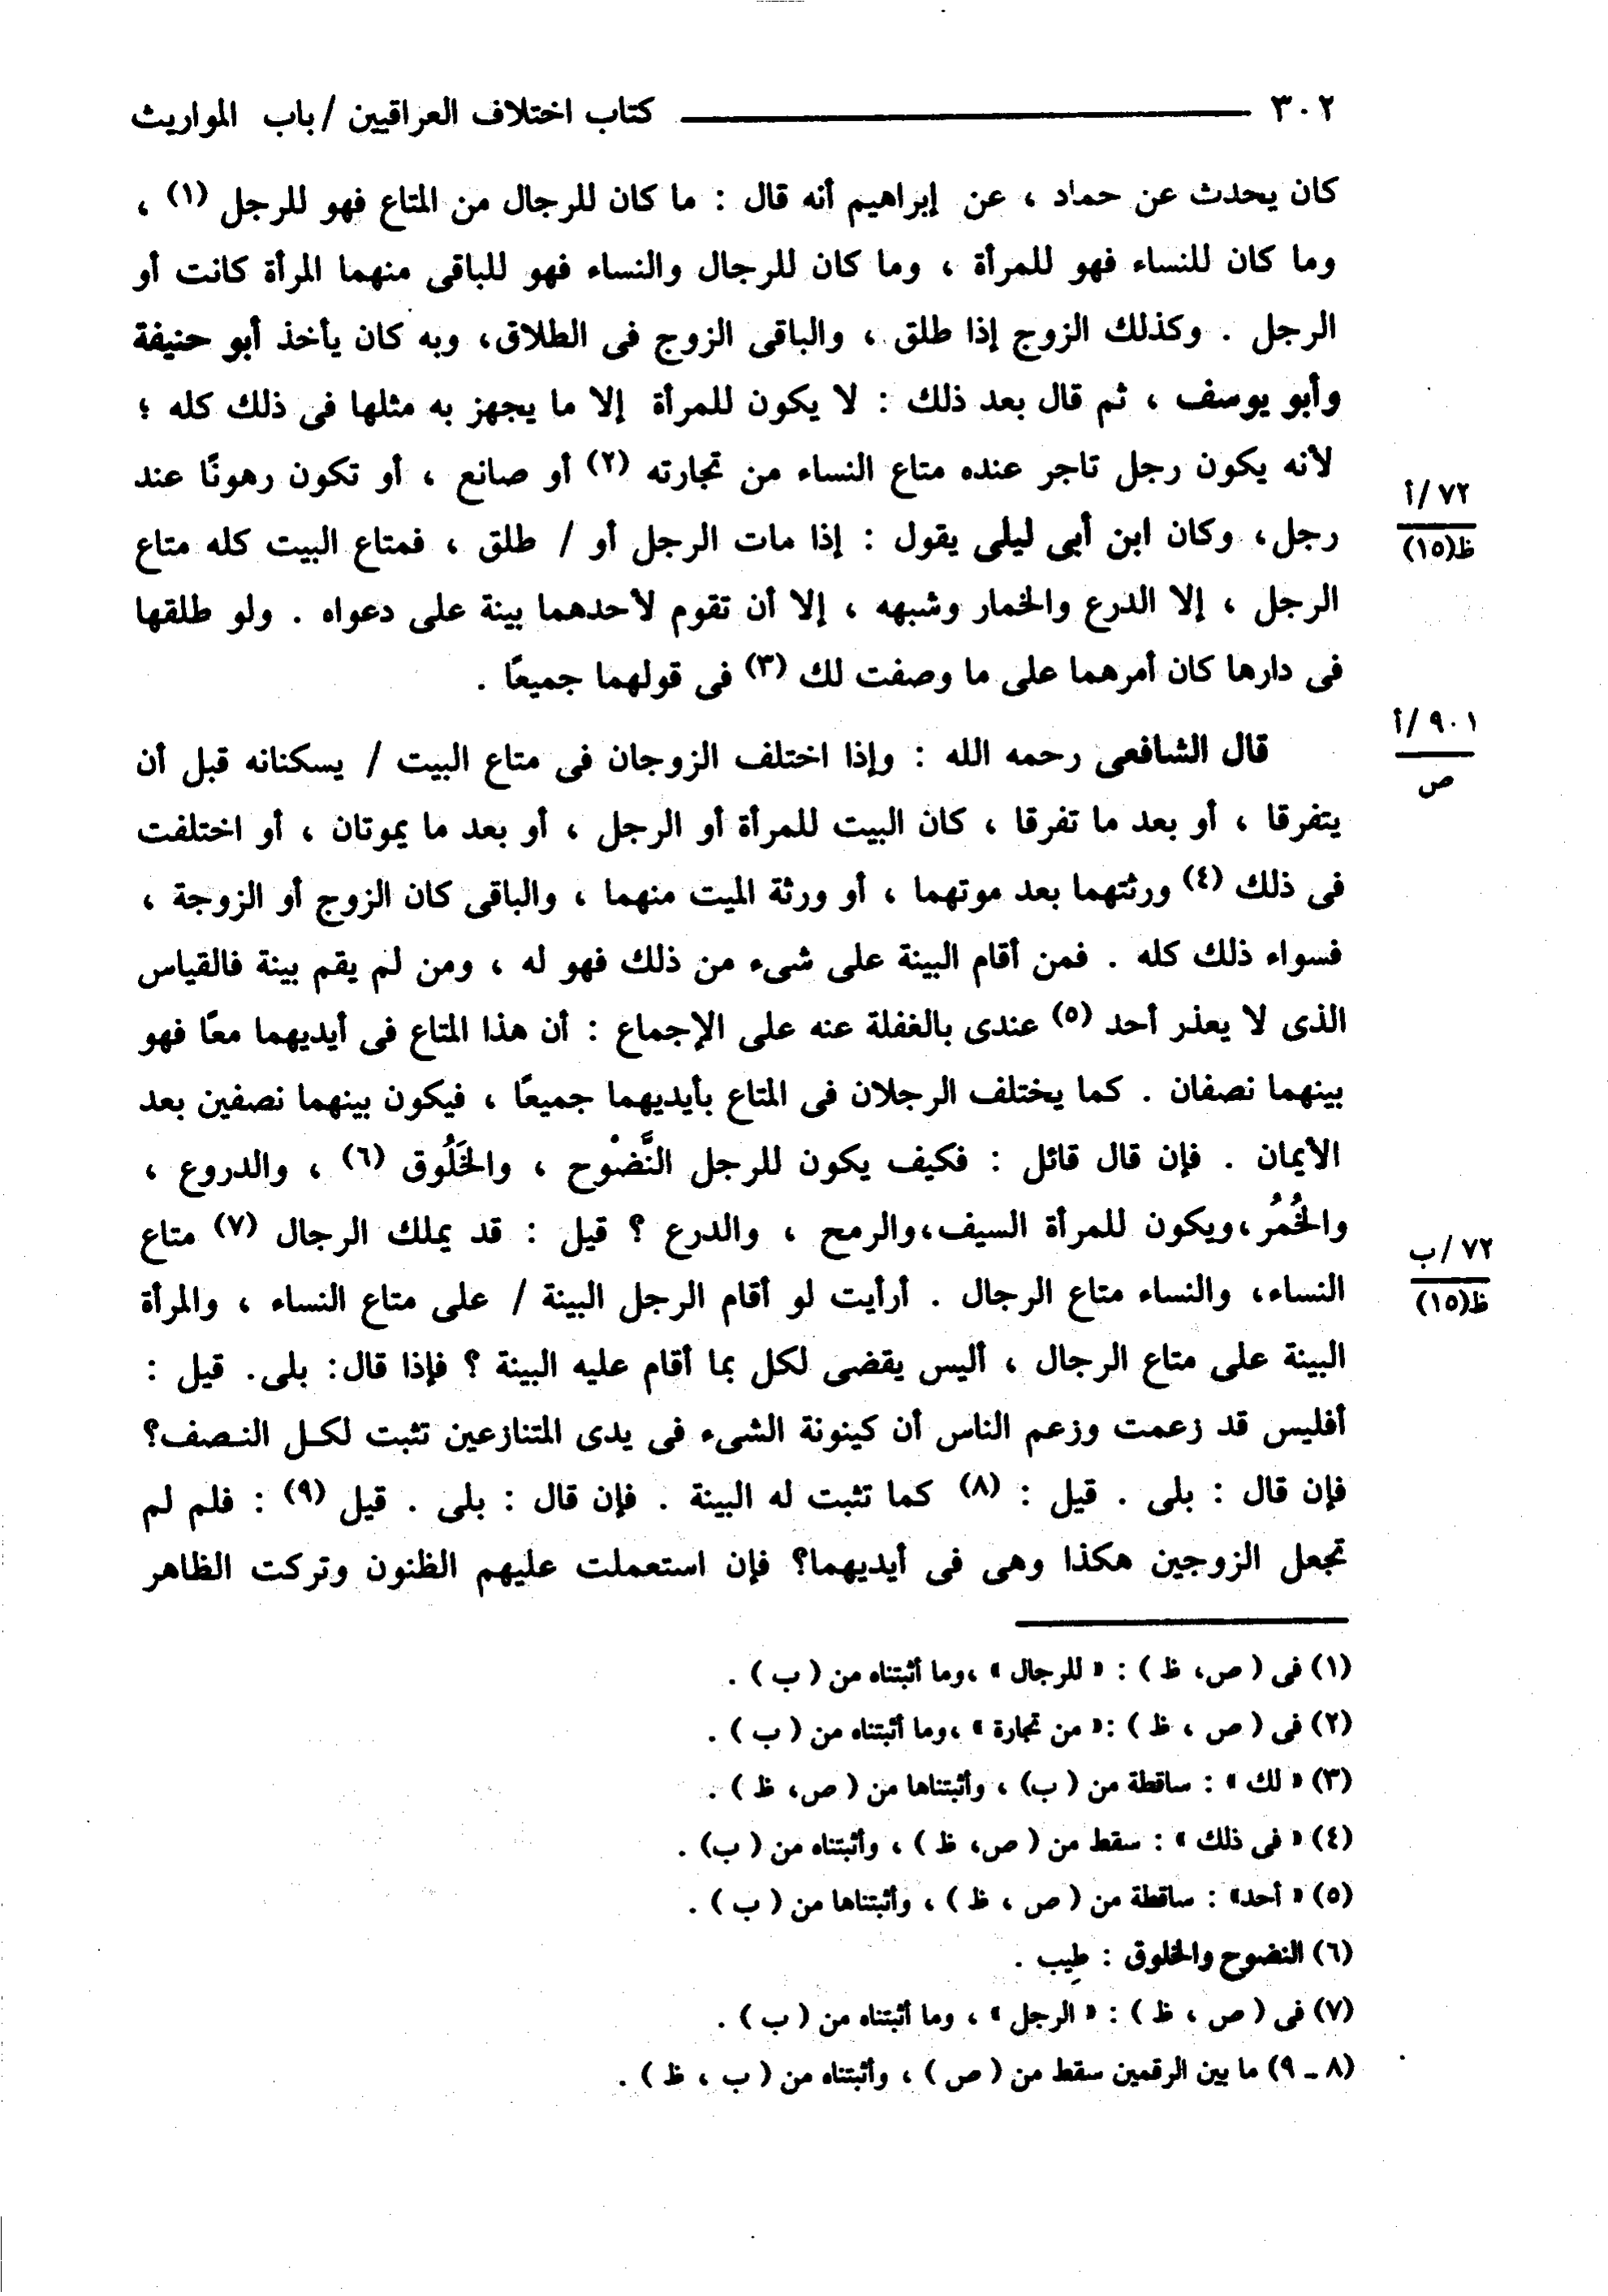 ٣٠٢ كتاب اختلاف العراقيين / باب المواريث
كان يحدث عن حماد ، عن إبراهيم أنه قال : ما كان للرجال من المتاع فهو للرجل (١) ،
وما كان للنساء فهو للمرأة ، وما كان للرجال والنساء فهو للباقى منهما المرأة كانت أو
الرجل . وكذلك الزوج إذا طلق ، والباقى الزوج فى الطلاق، وبه كان يأخذ أبو حنيفة
وأبو يوسف ، ثم قال بعد ذلك : لا يكون للمرأة إلا ما يجهز به مثلها فى ذلك كله ؛
لأنه يكون رجل تاجر عنده متاع النساء من تجارته (٢) أو صانع ، أو تكون رهونًا عند
٧٢/أ
ظ(١٥)
رجل، وكان ابن أبى ليلى يقول : إذا مات الرجل أو / طلق ، فمتاع البيت كله متاع
الرجل ، إلا الدرع والخمار وشبهه ، إلا أن تقوم لأحدهما بينة على دعواه . ولو طلقها
فى دارها كان أمرهما على ما وصفت لك (٣) فى قولهما جميعًا .
٩٠١/أ
ص
قال الشافعى رحمه الله : وإذا اختلف الزوجان فى متاع البيت / يسكنانه قبل أن
يتفرقا ، أو بعد ما تفرقا ، كان البيت للمرأة أو الرجل ، أو بعد ما يموتان ، أو اختلفت
فى ذلك (٤) ورثتهما بعد موتهما ، أو ورثة الميت منهما ، والباقى كان الزوج أو الزوجة ،
فسواء ذلك كله . فمن أقام البينة على شىء من ذلك فهو له ، ومن لم يقم بينة فالقياس
الذى لا يعذر أحد (٥) عندى بالغفلة عنه على الإجماع : أن هذا المتاع فى أيديهما معًا فهو
بينهما نصفان . كما يختلف الرجلان فى المتاع بأيديهما جميعًا ، فيكون بينهما نصفين بعد
الأيمان . فإن قال قائل : فكيف يكون للرجل النَّضُوْح ، والخَلُوق (٦) ، والدروع ،
والخُمُر ،ويكون للمرأة السيف،والرمح ، والدرع ؟ قيل : قد يملك الرجال (٧) متاع
٧٢/ب
ظ(١٥)
النساء، والنساء متاع الرجال . أرأيت لو أقام الرجل البينة / على متاع النساء ، والمرأة
البينة على متاع الرجال ، أليس يقضى لكل بما أقام عليه البينة ؟ فإذا قال: بلى. قيل :
أفليس قد زعمت وزعم الناس أن كينونة الشىء فى يدى المتنازعين تثبت لكل النصف؟
فإن قال : بلى . قيل : (٨) كما تثبت له البينة . فإن قال : بلى . قيل (٩) : فلم لم
تجعل الزوجين هكذا وهى فى أيديهما؟ فإن استعملت عليهم الظنون وتركت الظاهر
(١) فى ( ص، ظ ) : « للرجال » ،وما أثبتناه من ( ب ) .
(٢) فى ( ص ، ظ ) :« من تجارة » ،وما أثبتناه من ( ب ) .
(٣) « لك » : ساقطة من ( ب) ، وأثبتناها من ( ص، ظ ) .
(٤) « فى ذلك » : سقط من ( ص، ظ ) ، وأثبتناه من ( ب) .
(٥) « أحد» : ساقطة من ( ص ، ظ ) ، وأثبتناها من ( ب ) .
(٦) النضوح والخلوق : طِيب .
(٧) فى ( ص ، ظ ) : « الرجل » ، وما أثبتناه من ( ب ) .
(٨ ـ ٩) ما بين الرقمين سقط من ( ص ) ، وأثبتناه من ( ب ، ظ ) .